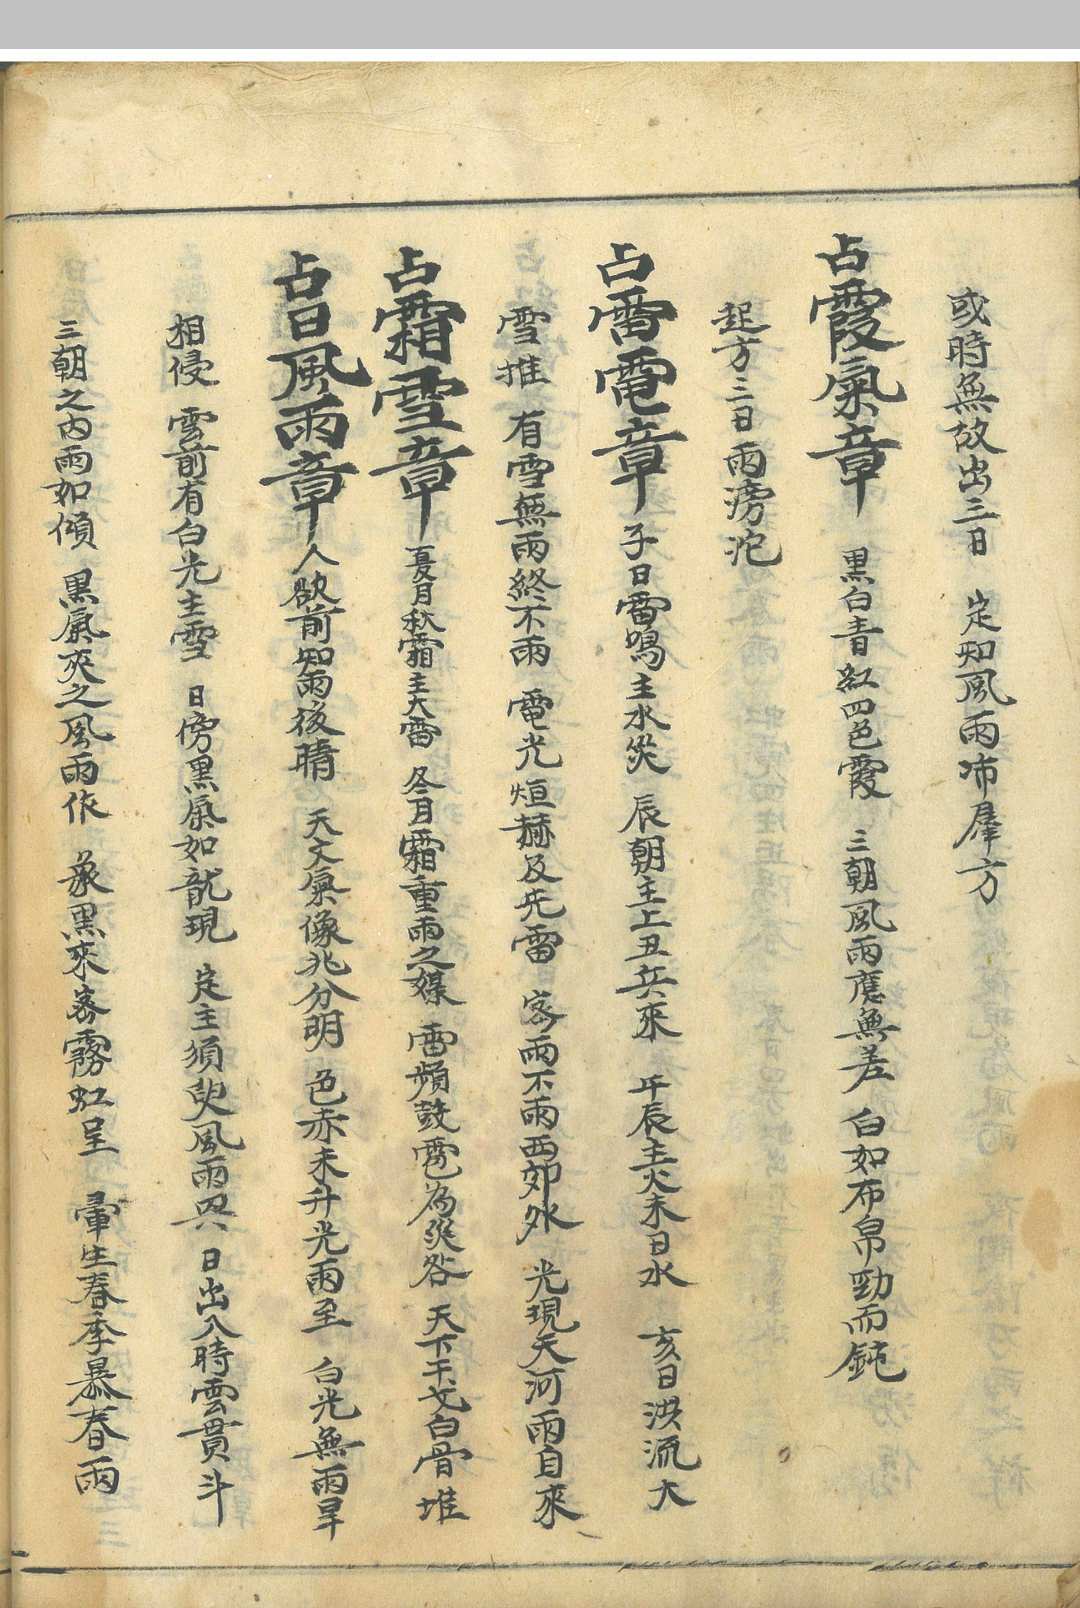 或時無故出三日 定知風雨沛羣方
占霞氣章 黑白青紅四色霞 三朝風雨應無差 白如布帛勁而鈍
起方三日雨滂沱
占雷電章 子日雷鳴主水災 辰朝主上丑兵來 午辰主火未日水 亥日洪流大
雪推 有雪無雨終不雨 電光烜赫及先雷 密雨不雨西郊外 光現天河雨自來
占霜雪章 夏月秋霜主大雷 冬月霜重雨之媒 雷頻鼓電為災咎 天下干戈白骨堆
占日風雨章 人欲前知雨後晴 天文氣像兆分明 色赤未升光雨至 白光無雨旱
相侵 雲前有白光主雪 日傍黑氣如龍現 定主須臾風雨興 日出入時雲貫斗
三朝之内雨如傾 黑氣夾之風雨作 蒙黑來密霧虹呈 暈生春季暴春雨